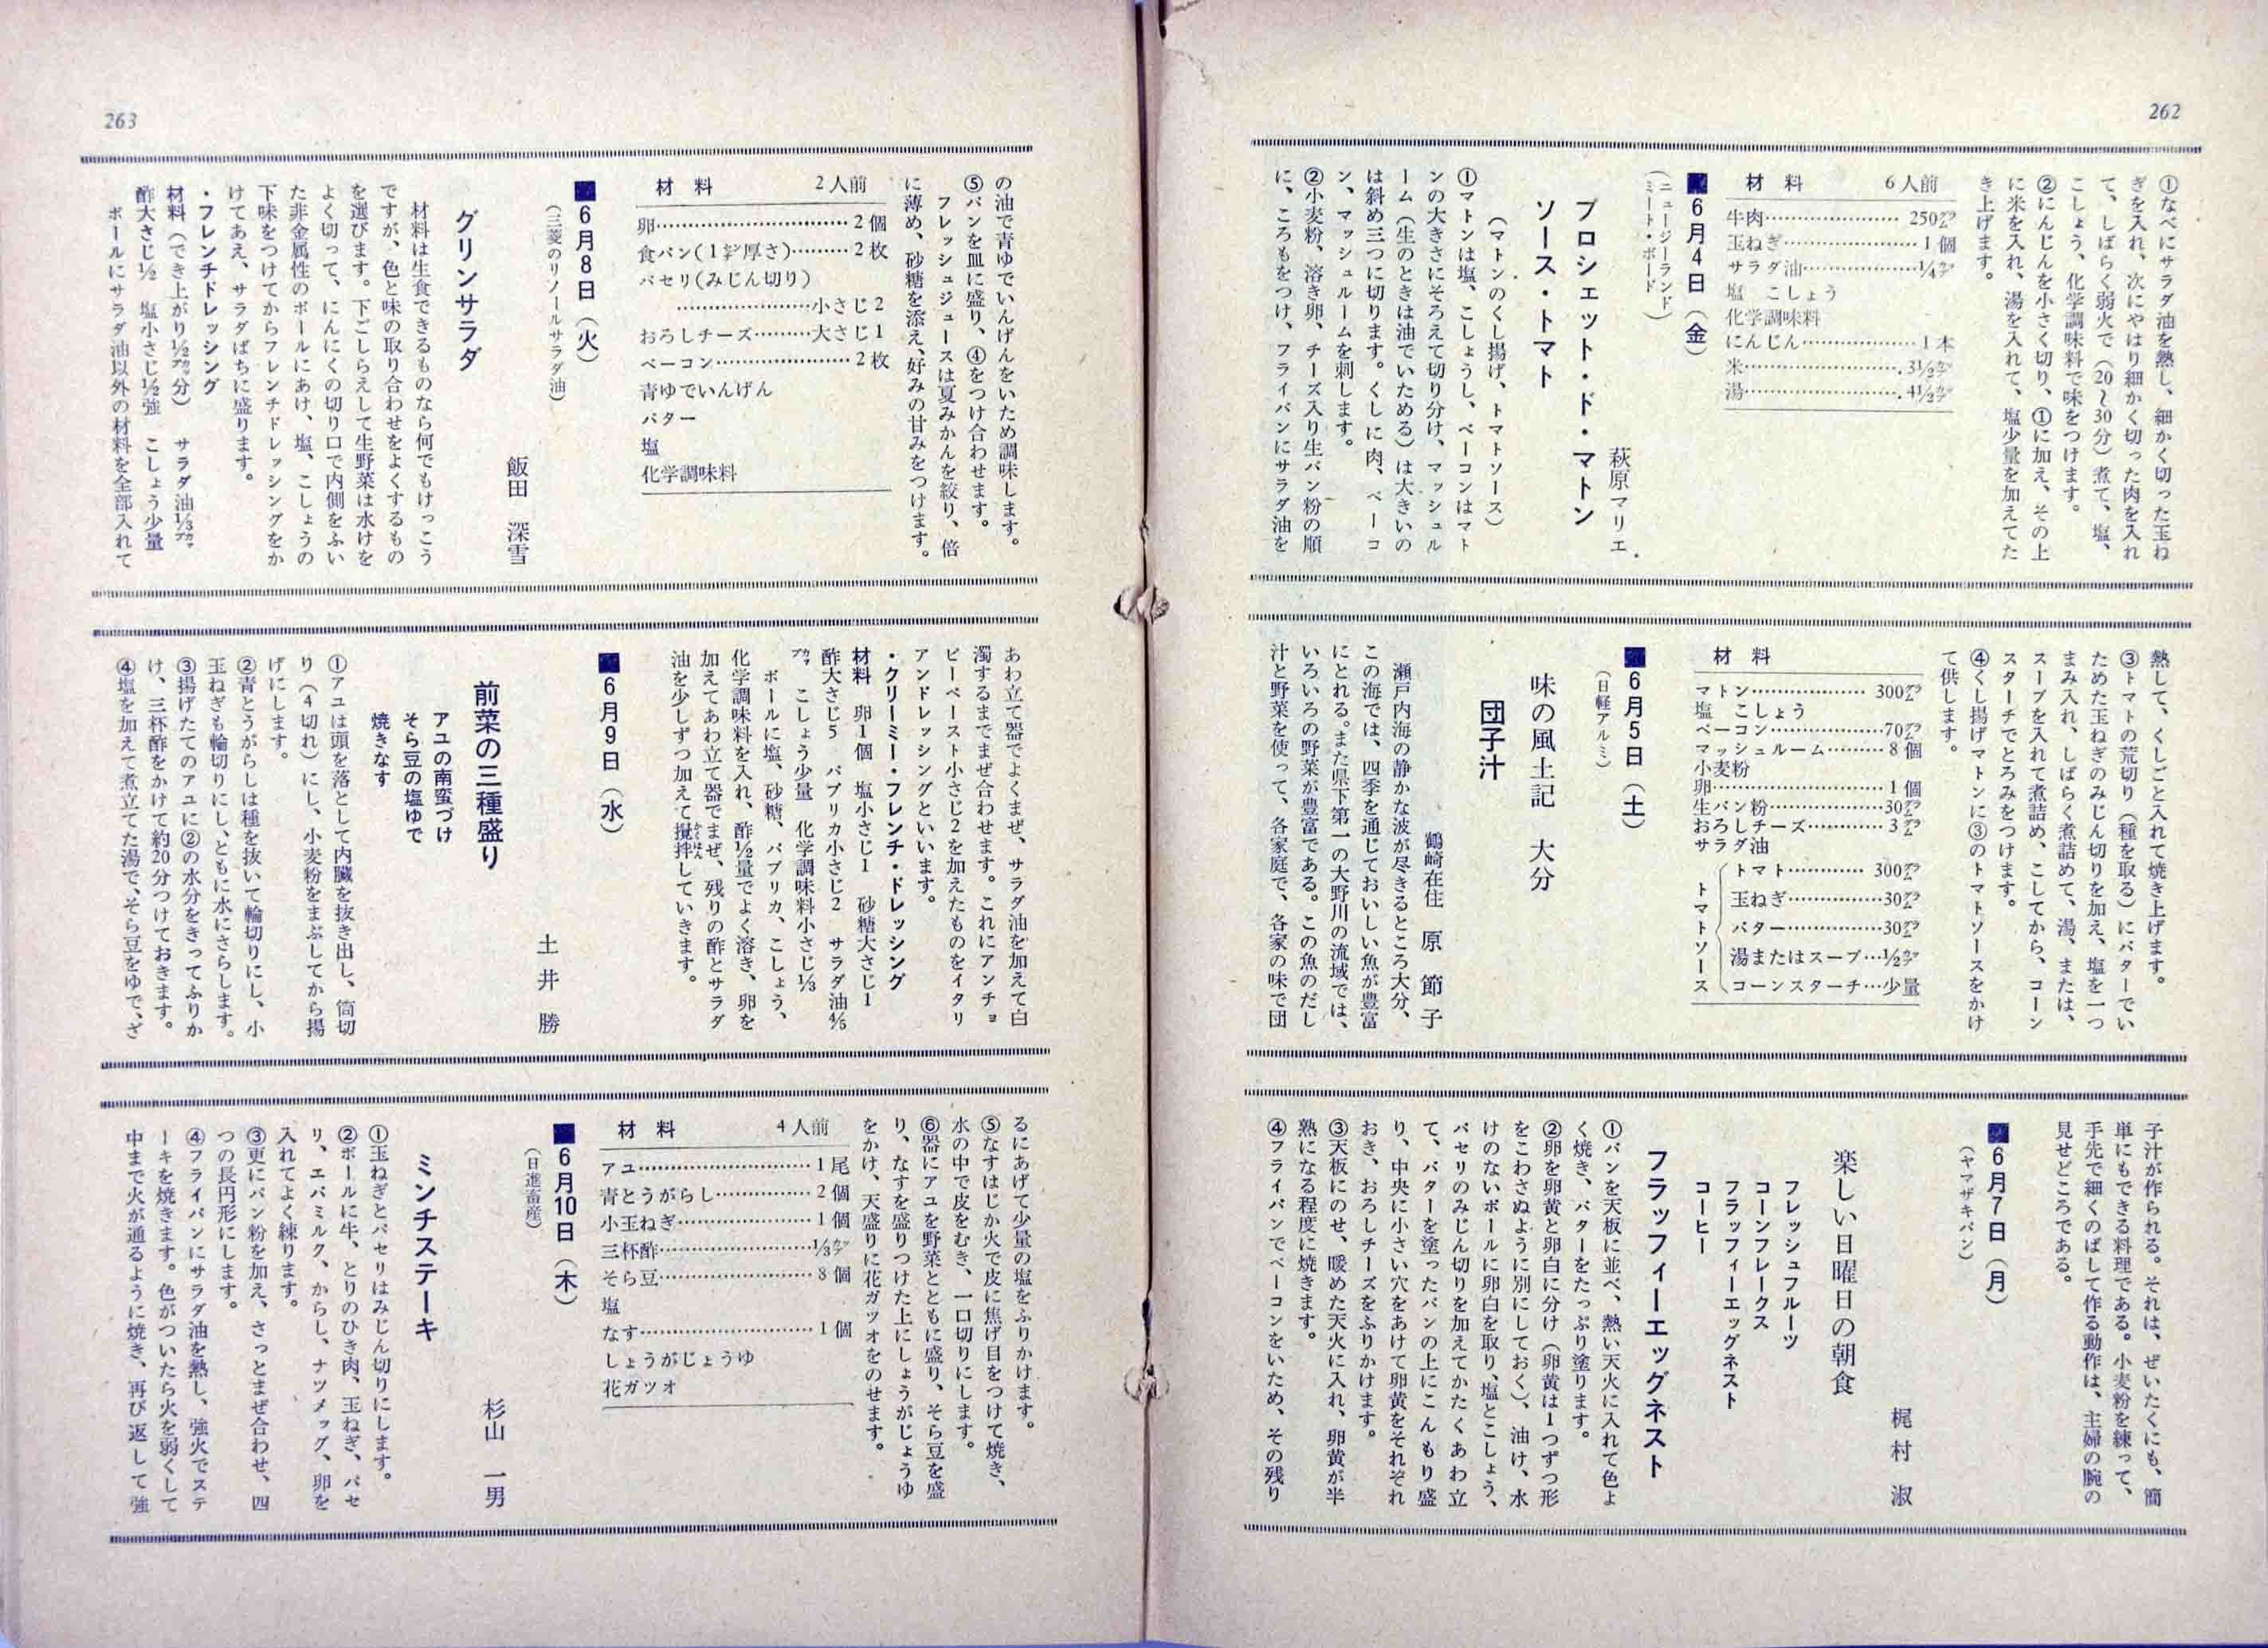 262
①なべにサラダ油を熱し、細かく切った玉ね
ぎを入れ、次にやはり細かく切った肉を入れ
て、しばらく弱火で（20〜30分）煮て、塩、
こしょう、化学調味料で味をつけます。
②にんじんを小さく切り、①に加え、その上
に米を入れ、湯を入れて、塩少量を加えてた
き上げます。
材料 6人前
牛肉…………………250㌘
玉ねぎ…………………1個
サラダ油………………¼㌍
塩 こしょう
化学調味料
にんじん………………1本
米……………………3½㌍
湯……………………4½㌍
■6月4日（金）
（ニュージーランド
ミート・ボード）
萩原マリエ
ブロシェット・ド・マトン
ソース・トマト
（マトンのくし揚げ、トマトソース）
①マトンは塩、こしょうし、ベーコンはマト
ンの大きさにそろえて切り分け、マッシュル
ーム（生のときは油でいためる）は大きいの
は斜め三つに切ります。くしに肉、ベーコ
ン、マッシュルームを刺します。
②小麦粉、溶き卵、チーズ入り生パン粉の順
に、ころもをつけ、フライパンにサラダ油を
熱して、くしごと入れて焼き上げます。
③トマトの荒切り（種を取る）にバターでい
ためた玉ねぎのみじん切りを加え、塩を一つ
まみ入れ、しばらく煮詰めて、湯、または、
スープを入れて煮詰め、こしてから、コーン
スターチでとろみをつけます。
④くし揚げマトンに③のトマトソースをかけ
て供します。
材料
マトン………………300㌘
塩 こしょう
ベーコン………………70㌘
マッシュルーム………8個
小麦粉
卵………………………1個
生パン粉………………30㌘
おろしチーズ…………3㌘
サラダ油
トマトソース
トマト…………300㌘
玉ねぎ…………30㌘
バター…………30㌘
湯またはスープ…½㌍
コーンスターチ…少量
■6月5日（土）
（日軽アルミ）
味の風土記 大分
団子汁
鶴崎在住 原 節子
瀬戸内海の静かな波が尽きるところ大分、
この海では、四季を通じておいしい魚が豊富
にとれる。また県下第一の大野川の流域では、
いろいろの野菜が豊富である。この魚のだし
汁と野菜を使って、各家庭で、各家の味で団
子汁が作られる。それは、ぜいたくにも、簡
単にもできる料理である。小麦粉を練って、
手先で細くのばして作る動作は、主婦の腕の
見せどころである。
■6月7日（月）
（ヤマザキパン）
梶村 淑
楽しい日曜日の朝食
フレッシュフルーツ
コーンフレークス
フラッフィーエッグネスト
コーヒー
フラッフィーエッグネスト
①パンを天板に並べ、熱い天火に入れて色よ
く焼き、バターをたっぷり塗ります。
②卵を卵黄と卵白に分け（卵黄は1つずつ形
をこわさぬように別にしておく）、油け、水
けのないボールに卵白を取り、塩とこしょう、
パセリのみじん切りを加えてかたくあわ立
て、バターを塗ったパンの上にこんもり盛
り、中央に小さい穴をあけて卵黄をそれぞれ
おき、おろしチーズをふりかけます。
③天板にのせ、暖めた天火に入れ、卵黄が半
熟になる程度に焼きます。
④フライパンでベーコンをいため、その残り
263
の油で青ゆでいんげんをいため調味します。
⑤パンを皿に盛り、④をつけ合わせます。
フレッシュジュースは夏みかんを絞り、倍
に薄め、砂糖を添え、好みの甘みをつけます。
材料 2人前
卵………………………2個
食パン(1㌢厚さ)………2枚
パセリ(みじん切り)
………………小さじ2
おろしチーズ………大さじ1
ベーコン…………………2枚
青ゆでいんげん
バター
塩
化学調味料
■6月8日（火）
（三菱のリノールサラダ油）
飯田 深雪
グリンサラダ
材料は生食できるものなら何でもけっこう
ですが、色と味の取り合わせをよくするもの
を選びます。下ごしらえして生野菜は水けを
よく切って、にんにくの切り口で内側をふい
た非金属性のボールにあけ、塩、こしょうの
下味をつけてからフレンチドレッシングをか
けてあえ、サラダばちに盛ります。
・フレンチドレッシング
材料（でき上がり½㌍分） サラダ油⅓㌍
酢大さじ½ 塩小さじ½強 こしょう少量
ボールにサラダ油以外の材料を全部入れて
あわ立て器でよくまぜ、サラダ油を加えて白
濁するまでまぜ合わせます。これにアンチョ
ビーペースト小さじ2を加えたものをイタリ
アンドレッシングといいます。
・クリーミー・フレンチ・ドレッシング
材料 卵1個 塩小さじ1 砂糖大さじ1
酢大さじ5 パプリカ小さじ2 サラダ油⅘
㌍ こしょう少量 化学調味料小さじ⅓
ボールに塩、砂糖、パプリカ、こしょう、
化学調味料を入れ、酢½量でよく溶き、卵を
加えてあわ立て器でまぜ、残りの酢とサラダ
油を少しずつ加えて攪拌していきます。
■6月9日（水）
土井 勝
前菜の三種盛り
アユの南蛮づけ
そら豆の塩ゆで
焼きなす
①アユは頭を落として内臓を抜き出し、筒切
り（4切れ）にし、小麦粉をまぶしてから揚
げにします。
②青とうがらしは種を抜いて輪切りにし、小
玉ねぎも輪切りにし、ともに水にさらします。
③揚げたてのアユに②の水分をきってふりか
け、三杯酢をかけて約20分つけておきます。
④塩を加えて煮立てた湯で、そら豆をゆで、ざ
るにあげて少量の塩をふりかけます。
⑤なすはじか火で皮に焦げ目をつけて焼き、
水の中で皮をむき、一口切りにします。
⑥器にアユを野菜とともに盛り、そら豆を盛
り、なすを盛りつけた上にしょうがじょうゆ
をかけ、天盛りに花ガツオをのせます。
材料 4人前
アユ……………………1尾
青とうがらし…………2個
小玉ねぎ………………1個
三杯酢…………………⅓㌍
そら豆…………………8個
塩
なす……………………1個
しょうがじょうゆ
花ガツオ
■6月10日（木）
（日進畜産）
杉山 一男
ミンチステーキ
①玉ねぎとパセリはみじん切りにします。
②ボールに牛、とりのひき肉、玉ねぎ、パセ
リ、エバミルク、からし、ナツメッグ、卵を
入れてよく練ります。
③更にパン粉を加え、さっとまぜ合わせ、四
つの長円形にします。
④フライパンにサラダ油を熱し、強火でステ
ーキを焼きます。色がついたら火を弱くして
中まで火が通るように焼き、再び返して強